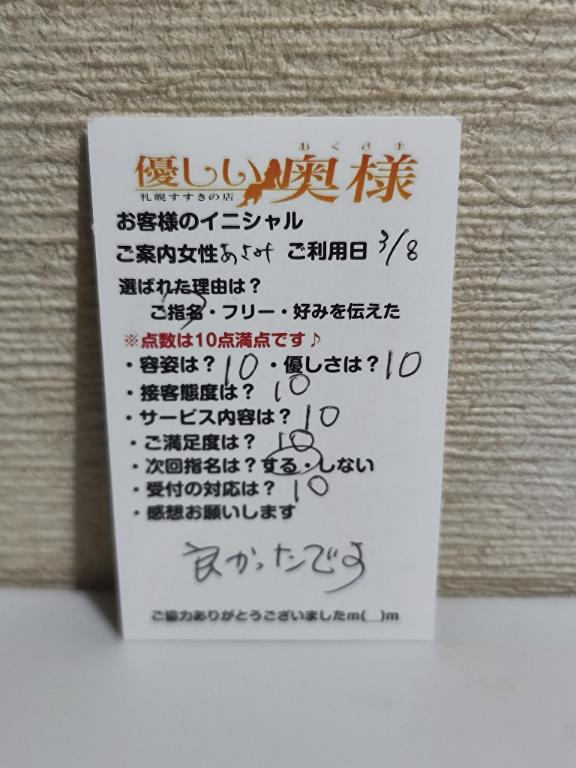 おくさま
優しい奥様
札幌すすきの店
お客様のイニシャル
ご案内女性あさみ ご利用日 3/8
選ばれた理由は？
ご指名・フリー・好みを伝えた
※点数は10点満点です♪
・容姿は？10 ・優しさは？10
・接客態度は？ 10
・サービス内容は？ 10
・ご満足度は？ 10
・次回指名は？する・しない
・受付の対応は？ 10
・感想お願いします
良かったです
ご協力ありがとうございましたm(__)m